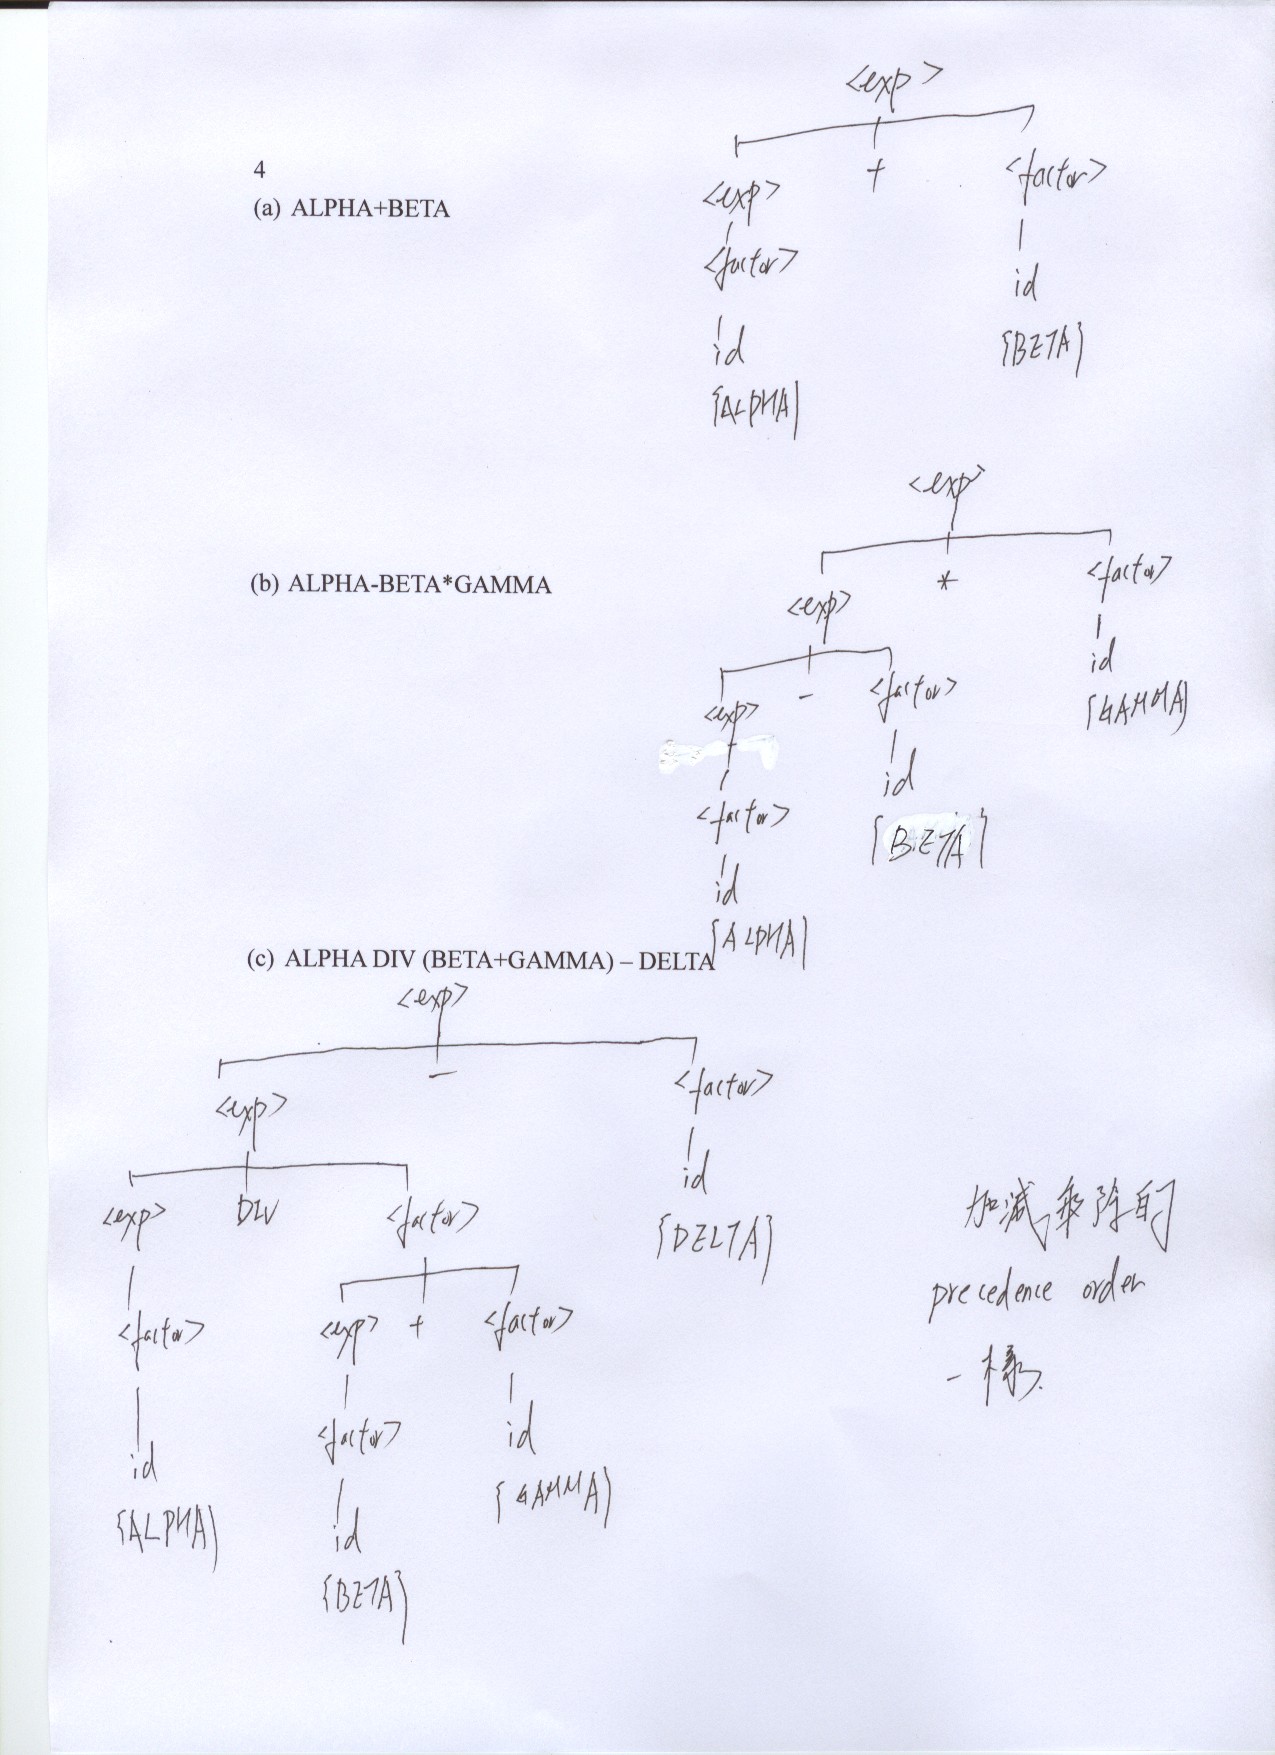 <exp>
4
<exp> + <factor>
(a) ALPHA+BETA
<factor> id
id {BETA}
{ALPHA}
<exp>
(b) ALPHA-BETA*GAMMA
<exp> * <factor>
id
<exp> - <factor> {GAMMA}
<factor> id
id {BETA}
{ALPHA}
(c) ALPHA DIV (BETA+GAMMA) – DELTA
<exp>
<exp> - <factor>
id
<exp> DIV <factor> {DELTA}
<factor> <exp> + <factor>
id <factor> id
{ALPHA} id {GAMMA}
{BETA}
加減乘除的
precedence order
一樣.